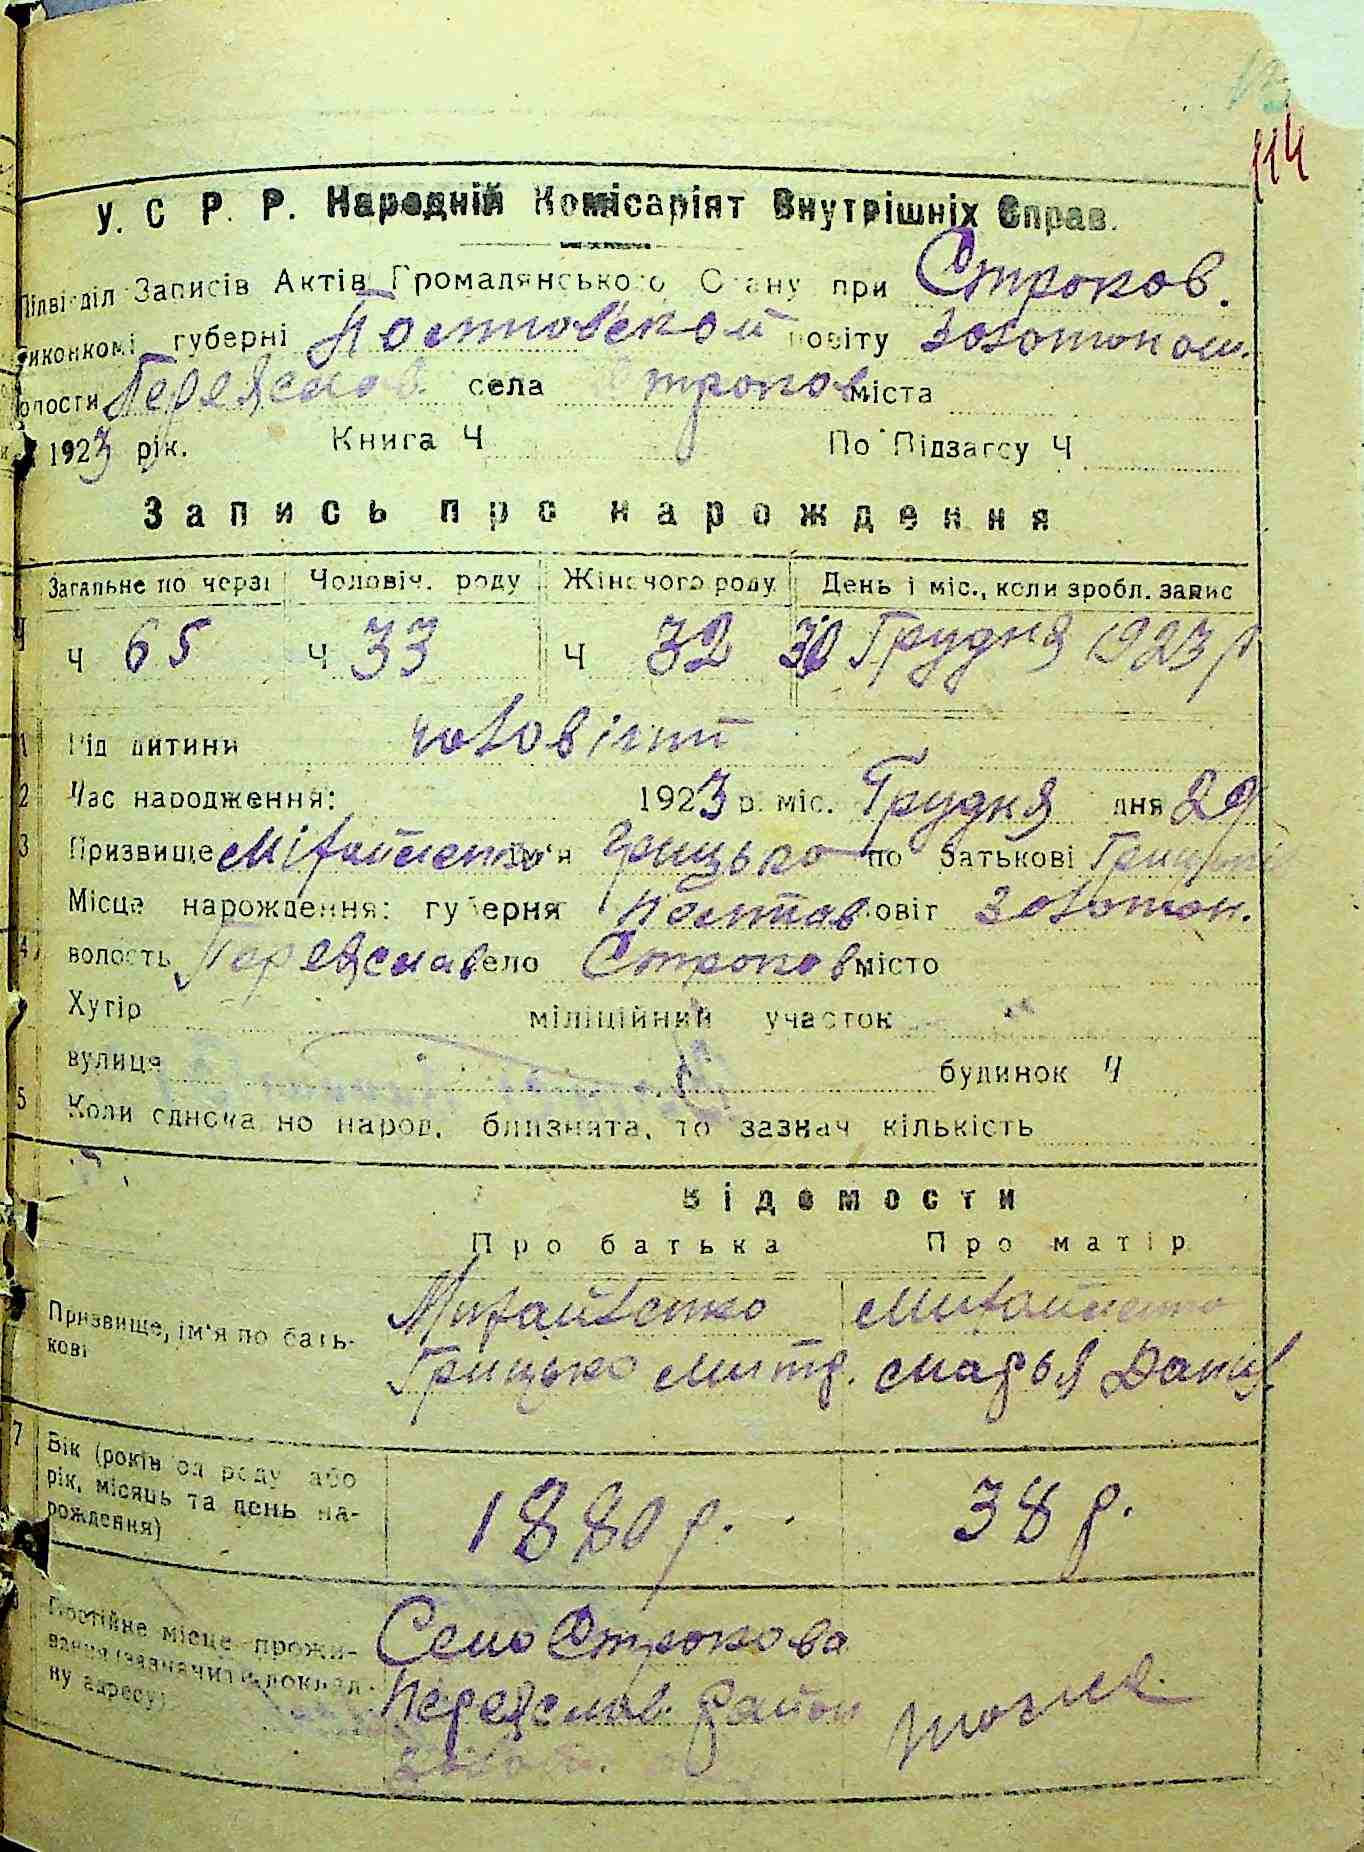 114
У. С. Р. Р. Народній Комісаріят Внутрішніх Справ.
Підвідділ Записів Актів Громадянського Стану при Строков.
виконкомі губерні Полтовской повіту Золотонош.
волости Переяслав села Строков міста
1923 рік. Книга Ч По Підзагсу Ч
Запись про нарождення
Загальне по черзі Чоловіч. роду Жіночого роду День і міс., коли зробл. запис
Ч 65 Ч 33 Ч 32 30 Грудня 1923 р
1 Рід дитини чоловічий
2 Час народження: 1923 р. міс. Грудня дня 29
3 Призвище Міхайленко Ім'я Грицько по батькові
Місце нарождення: губерня Полтав повіт Золотон.
4 волость Переяслав село Строков місто
Хутір міліційний участок
вулиця будинок Ч
5 Коли одноча но народ. близнята, то зазнач кількість
Відомости
Про батька Про матір
Призвище, ім'я по бать-
кові
Михайленко Михайленко
Грицько Митр. Марья Данил
7 Вік (років од роду або
рік, місяць та день на-
рождення)
1880 р. 38 р.
Постійне місце прожи-
вання (зазначити доклад-
ну адресу)
Село Строкова
Переяслав. район
тоже